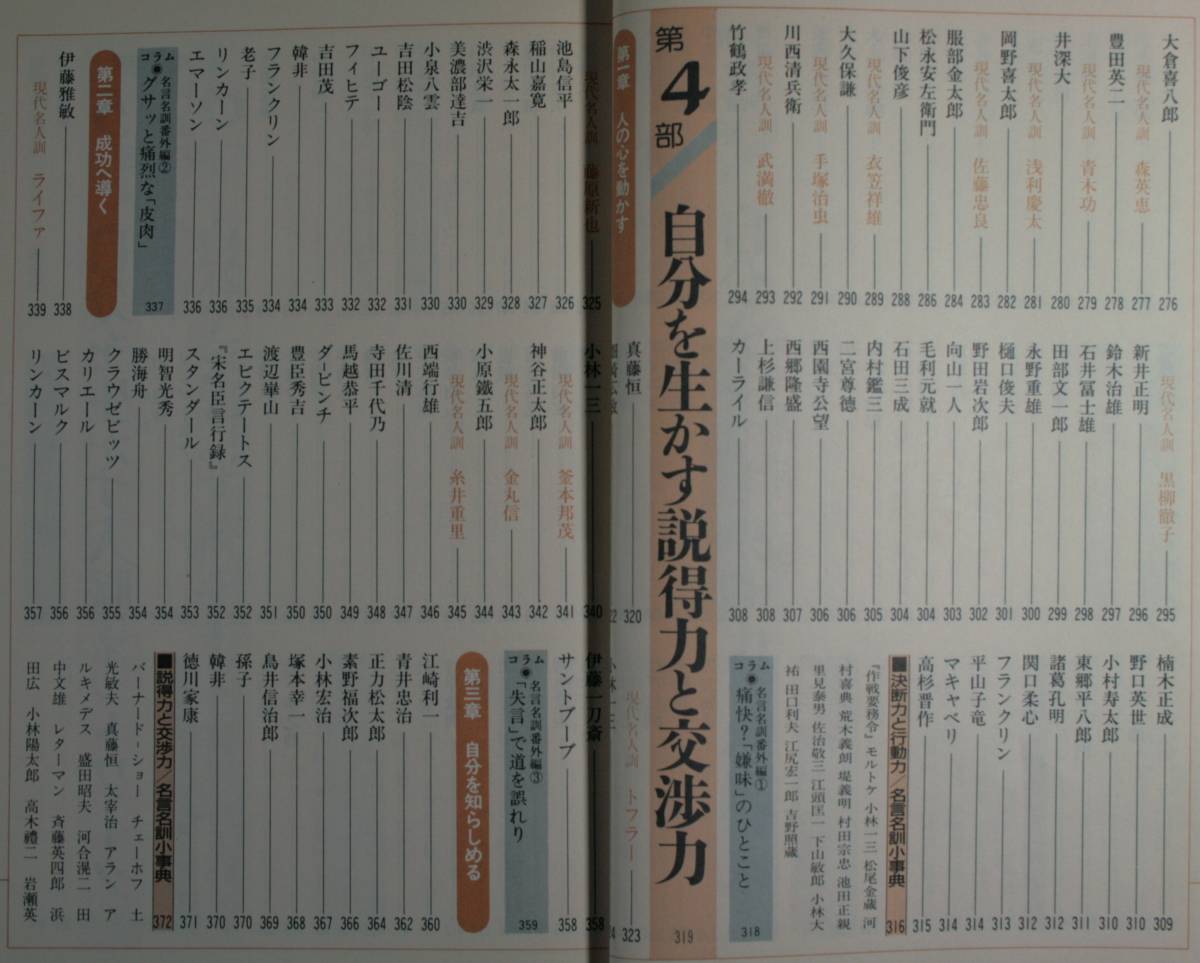 大倉喜八郎 276
現代名人訓 森英恵 277
豊田英二 278
現代名人訓 青木功 279
井深大 280
現代名人訓 浅利慶太 281
岡野喜太郎 282
現代名人訓 佐藤忠良 283
服部金太郎 284
松永安左衛門 286
山下俊彦 288
現代名人訓 衣笠祥雄 289
大久保謙 290
現代名人訓 手塚治虫 291
川西清兵衛 292
現代名人訓 武満徹 293
竹鶴政孝 294
現代名人訓 黒柳徹子 295
新井正明 296
鈴木治雄 297
石井冨士雄 298
田部文一郎 299
永野重雄 300
樋口俊夫 301
野田岩次郎 302
向山一人 303
毛利元就 304
石田三成 304
内村鑑三 305
二宮尊徳 306
西園寺公望 306
西郷隆盛 307
上杉謙信 308
カーライル 308
楠木正成 309
野口英世 310
小村寿太郎 310
東郷平八郎 311
諸葛孔明 312
関口柔心 312
フランクリン 313
平山子竜 314
マキャベリ 314
高杉晋作 315
■決断力と行動力/名言名訓小事典 316
『作戦要務令』 モルトケ 小林一三 松尾金蔵 河
村喜典 荒木義朗 堤義明 村田宗忠 池田正親
里見泰男 佐治敬三 江頭匡一 下山敏郎 小林大
祐 田口利夫 江尻宏一郎 吉野照蔵
コラム 名言名訓番外編①
痛快?「嫌味」のひとこと 318
第4部 自分を生かす説得力と交渉力 319
第一章 人の心を動かす
真藤恒 320
現代名人訓 トフラー 323
現代名人訓 藤原新也 325
池島信平 326
稲山嘉寛 327
森永太一郎 328
渋沢栄一 329
美濃部達吉 330
小泉八雲 330
吉田松陰 331
ユーゴー 332
フィヒテ 332
吉田茂 333
韓非 334
フランクリン 334
老子 335
リンカーン 336
エマーソン 336
コラム 名言名訓番外編②
グサッと痛烈な「皮肉」 337
第二章 成功へ導く
伊藤雅敏 338
現代名人訓 ライファ 339
小林一三 340
現代名人訓 釜本邦茂 341
神谷正太郎 342
現代名人訓 金丸信 343
小原鐵五郎 344
現代名人訓 糸井重里 345
西端行雄 346
佐川清 347
寺田千代乃 348
馬越恭平 349
ダ・ビンチ 350
豊臣秀吉 350
渡辺崋山 351
エピクテートス 352
『宋名臣言行録』 352
スタンダール 353
明智光秀 354
勝海舟 354
クラウゼビッツ 355
カリエール 356
ビスマルク 356
リンカーン 357
伊藤一刀斎 358
サントブーブ 358
コラム 名言名訓番外編③
「失言」で道を誤れり 359
第三章 自分を知らしめる
江崎利一 360
青井忠治 362
正力松太郎 364
素野福次郎 366
小林宏治 367
塚本幸一 368
鳥井信治郎 369
孫子 370
韓非 370
徳川家康 371
■説得力と交渉力/名言名訓小事典 372
バーナード=ショー チェーホフ 土
光敏夫 真藤恒 太宰治 アラン ア
ルキメデス 盛田昭夫 河合滉二 田
中文雄 レターマン 斉藤英四郎 浜
田広 小林陽太郎 高木禮二 岩瀬英